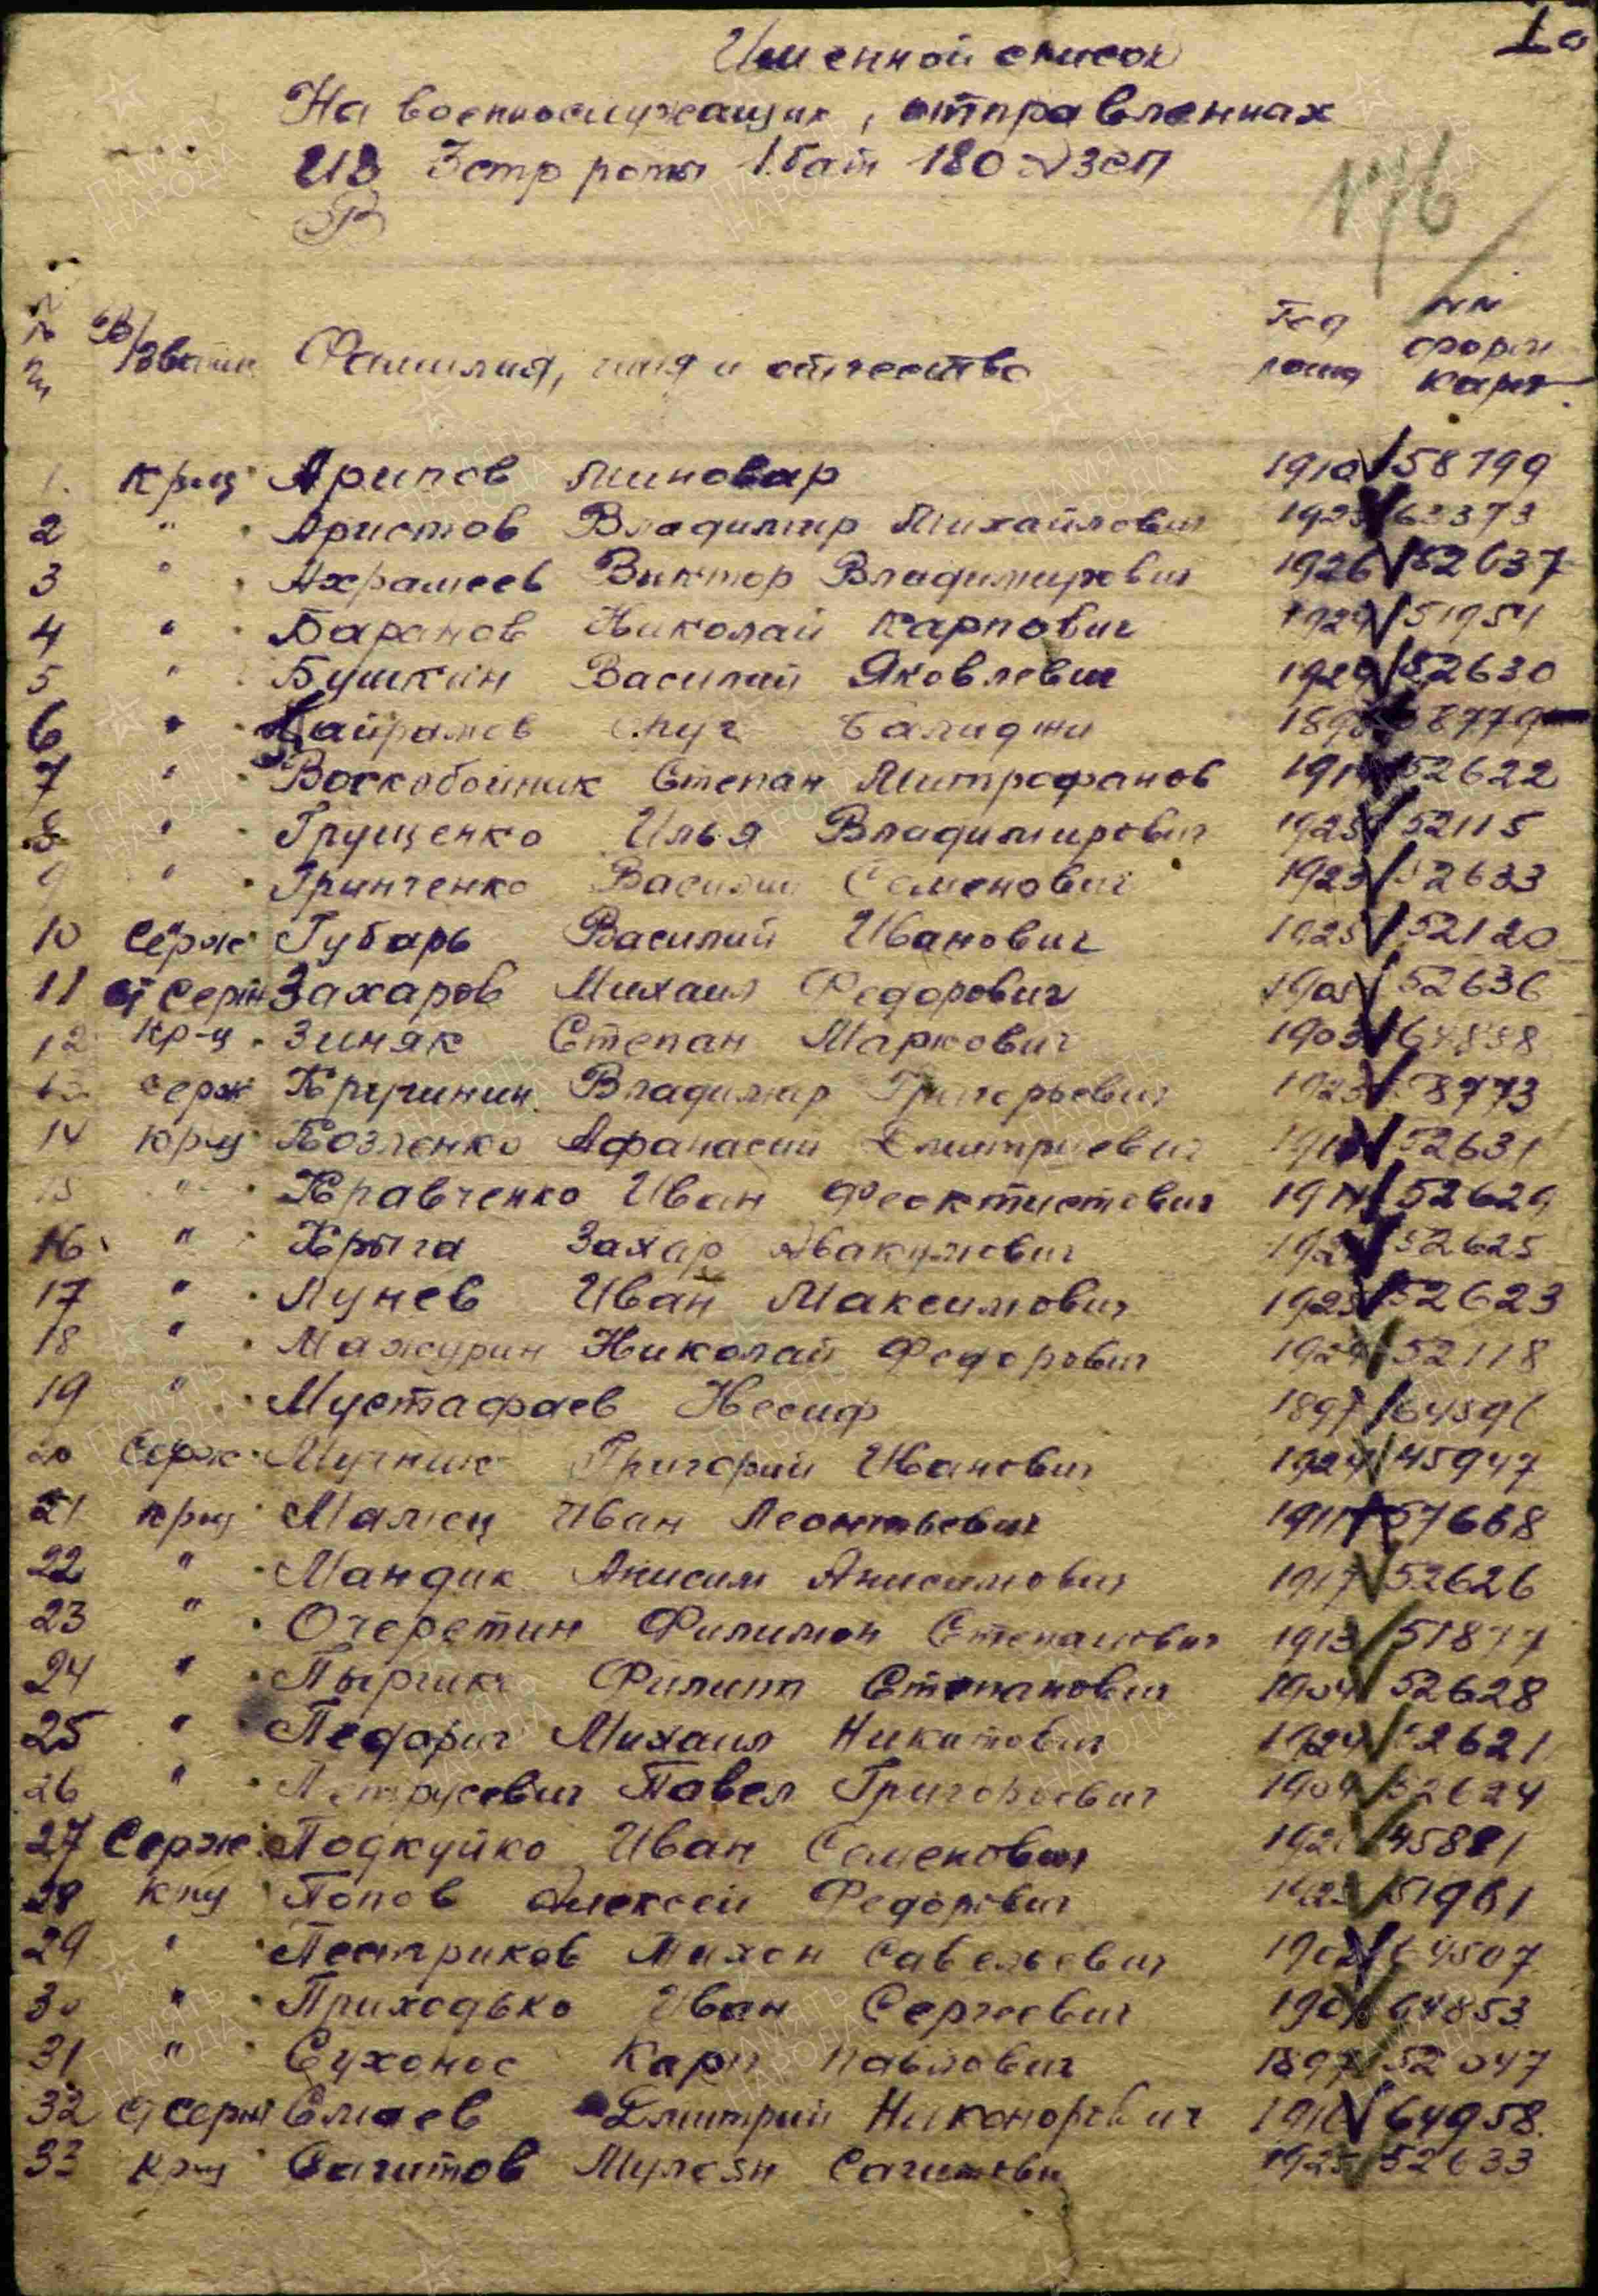 Именной список
На военнослужащих, отправленных
из 3 стр роты 1 бат 180 зсп
176
В/звание Фамилия, имя и отчество Год рожд NN форм карт
1. Кр-ц Арипов Миновар 1910 58799
2 " Аристов Владимир Михайлович 63373
3 " Ахрамеев Виктор Владимирович 1926 52637
4 " Баранов Николай Карпович 51951
5 " Бушкин Василий Яковлевич 52630
6 "
7 " Воскобойник Степан Митрофанов 52622
8 " Грущенко Илья Владимирович 1925 52115
9 " Гринченко Василий Семенович 1923 52633
10 Серж Губарь Василий Иванович 1925 52120
11 ст Серж Захаров Михаил Федорович 52636
12 Кр-ц Зиняк Степан Маркович 1903
серж Кручинин Владимир Григорьевич 1923
14 кр-ц Козленко Афанасий Дмитриевич 52631
15 " Кравченко Иван Феоктистович 52629
16 " Крыга Захар Авакумович 52625
17 " Лунев Иван Максимович 52623
18 " Мажурин Николай Федорович 52118
19 " Мустафаев Несиф 1897
20 Серж Мучник Григорий Иванович 1924 45947
21 кр-ц Малец Иван Леонтьевич 1911 57668
22 " Мандик Анисим Анисимович 1917 52626
23 " Очеретин Филимон Степанович 1913 51877
24 " Пырчик Филипп Степанович 1904 52628
25 " Педорич Михаил Никитович 1924 52621
26 " Петрусевич Павел Григорьевич 52624
27 Серж Подкуйко Иван Семенович
28 Кр-ц Попов Алексей Федорович
29 " Пестриков Тихон Савельевич 1902 64507
30 " Приходько Иван Сергеевич 64853
31 " Сухонос Карп Павлович 1897 52047
32 ст серж Елисеев Дмитрий Никонорович 64958
33 Кр-ц Сагитов Сагитови 1925 52633